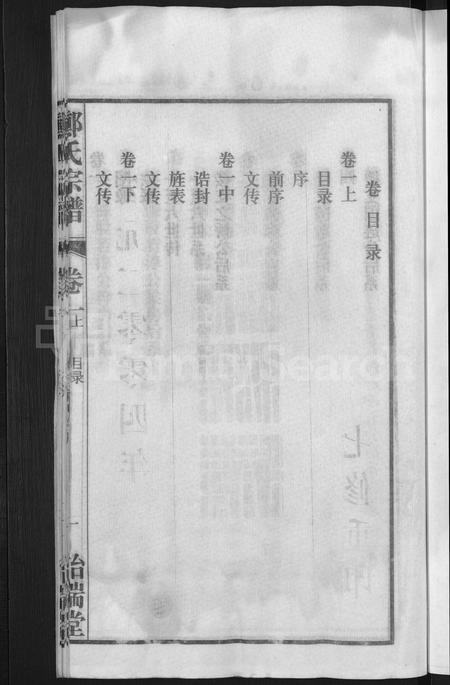 卷目录
卷一上
目录
序
前序
文传
卷一中
诰封
旌表
文传
卷一下
文传
郭氏宗谱
卷一上
目录
一
怡瑞堂
FamilySearch